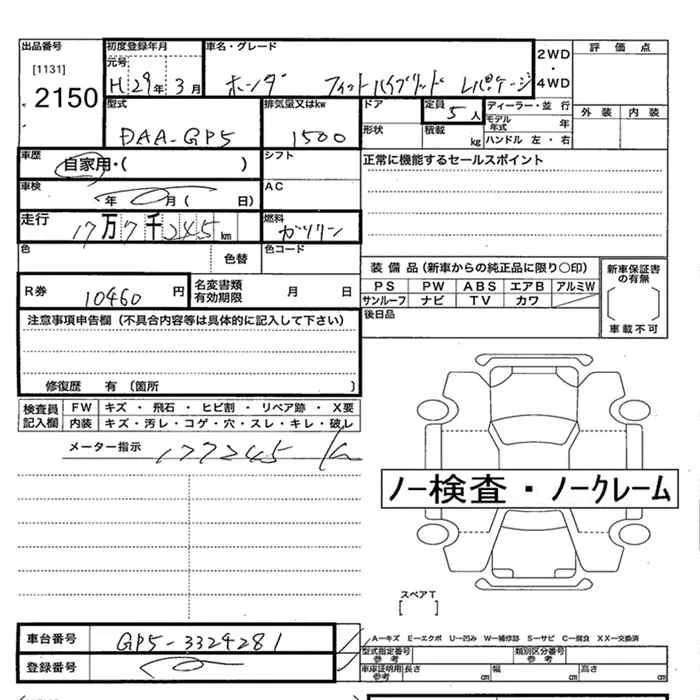 出品番号 初度登録年月 車名・グレード 2WD・4WD 評価点
[1131] 元号
2150 H29年3月 ホンダ フィットハイブリッド Lパッケージ
型式 排気量又はkw ドア 定員 5人 ディーラー・並行 外装 内装
DAA-GP5 1500 形状 積載 kg モデル年式 年
ハンドル 左・右
車歴 自家用・( ) シフト 正常に機能するセールスポイント
車検 年 月( 日) AC
走行 17万7千245km 燃料 ガソリン
色 色替 色コード
装備品(新車からの純正品に限り○印) 新車保証書の有無
PS PW ABS エアB アルミW
R券 10460円 名変書類有効期限 月 日 サンルーフ ナビ TV カワ
後日品 車載不可
注意事項申告欄(不具合内容等は具体的に記入して下さい)
修復歴 有(箇所 )
検査員記入欄 FW キズ・飛石・ヒビ割・リペア跡・X要
内装 キズ・汚レ・コゲ・穴・スレ・キレ・破レ
メーター指示 177245 km
ノー検査・ノークレーム
スペアT
[ ]
車台番号 GP5-3324281
A−キズ E−エクボ U−凹み W−補修跡 S−サビ C−腐食 XX−交換済
登録番号
型式指定番号 参考 類別区分番号 参考
車庫証明用 参考 長さ cm 幅 cm 高さ cm